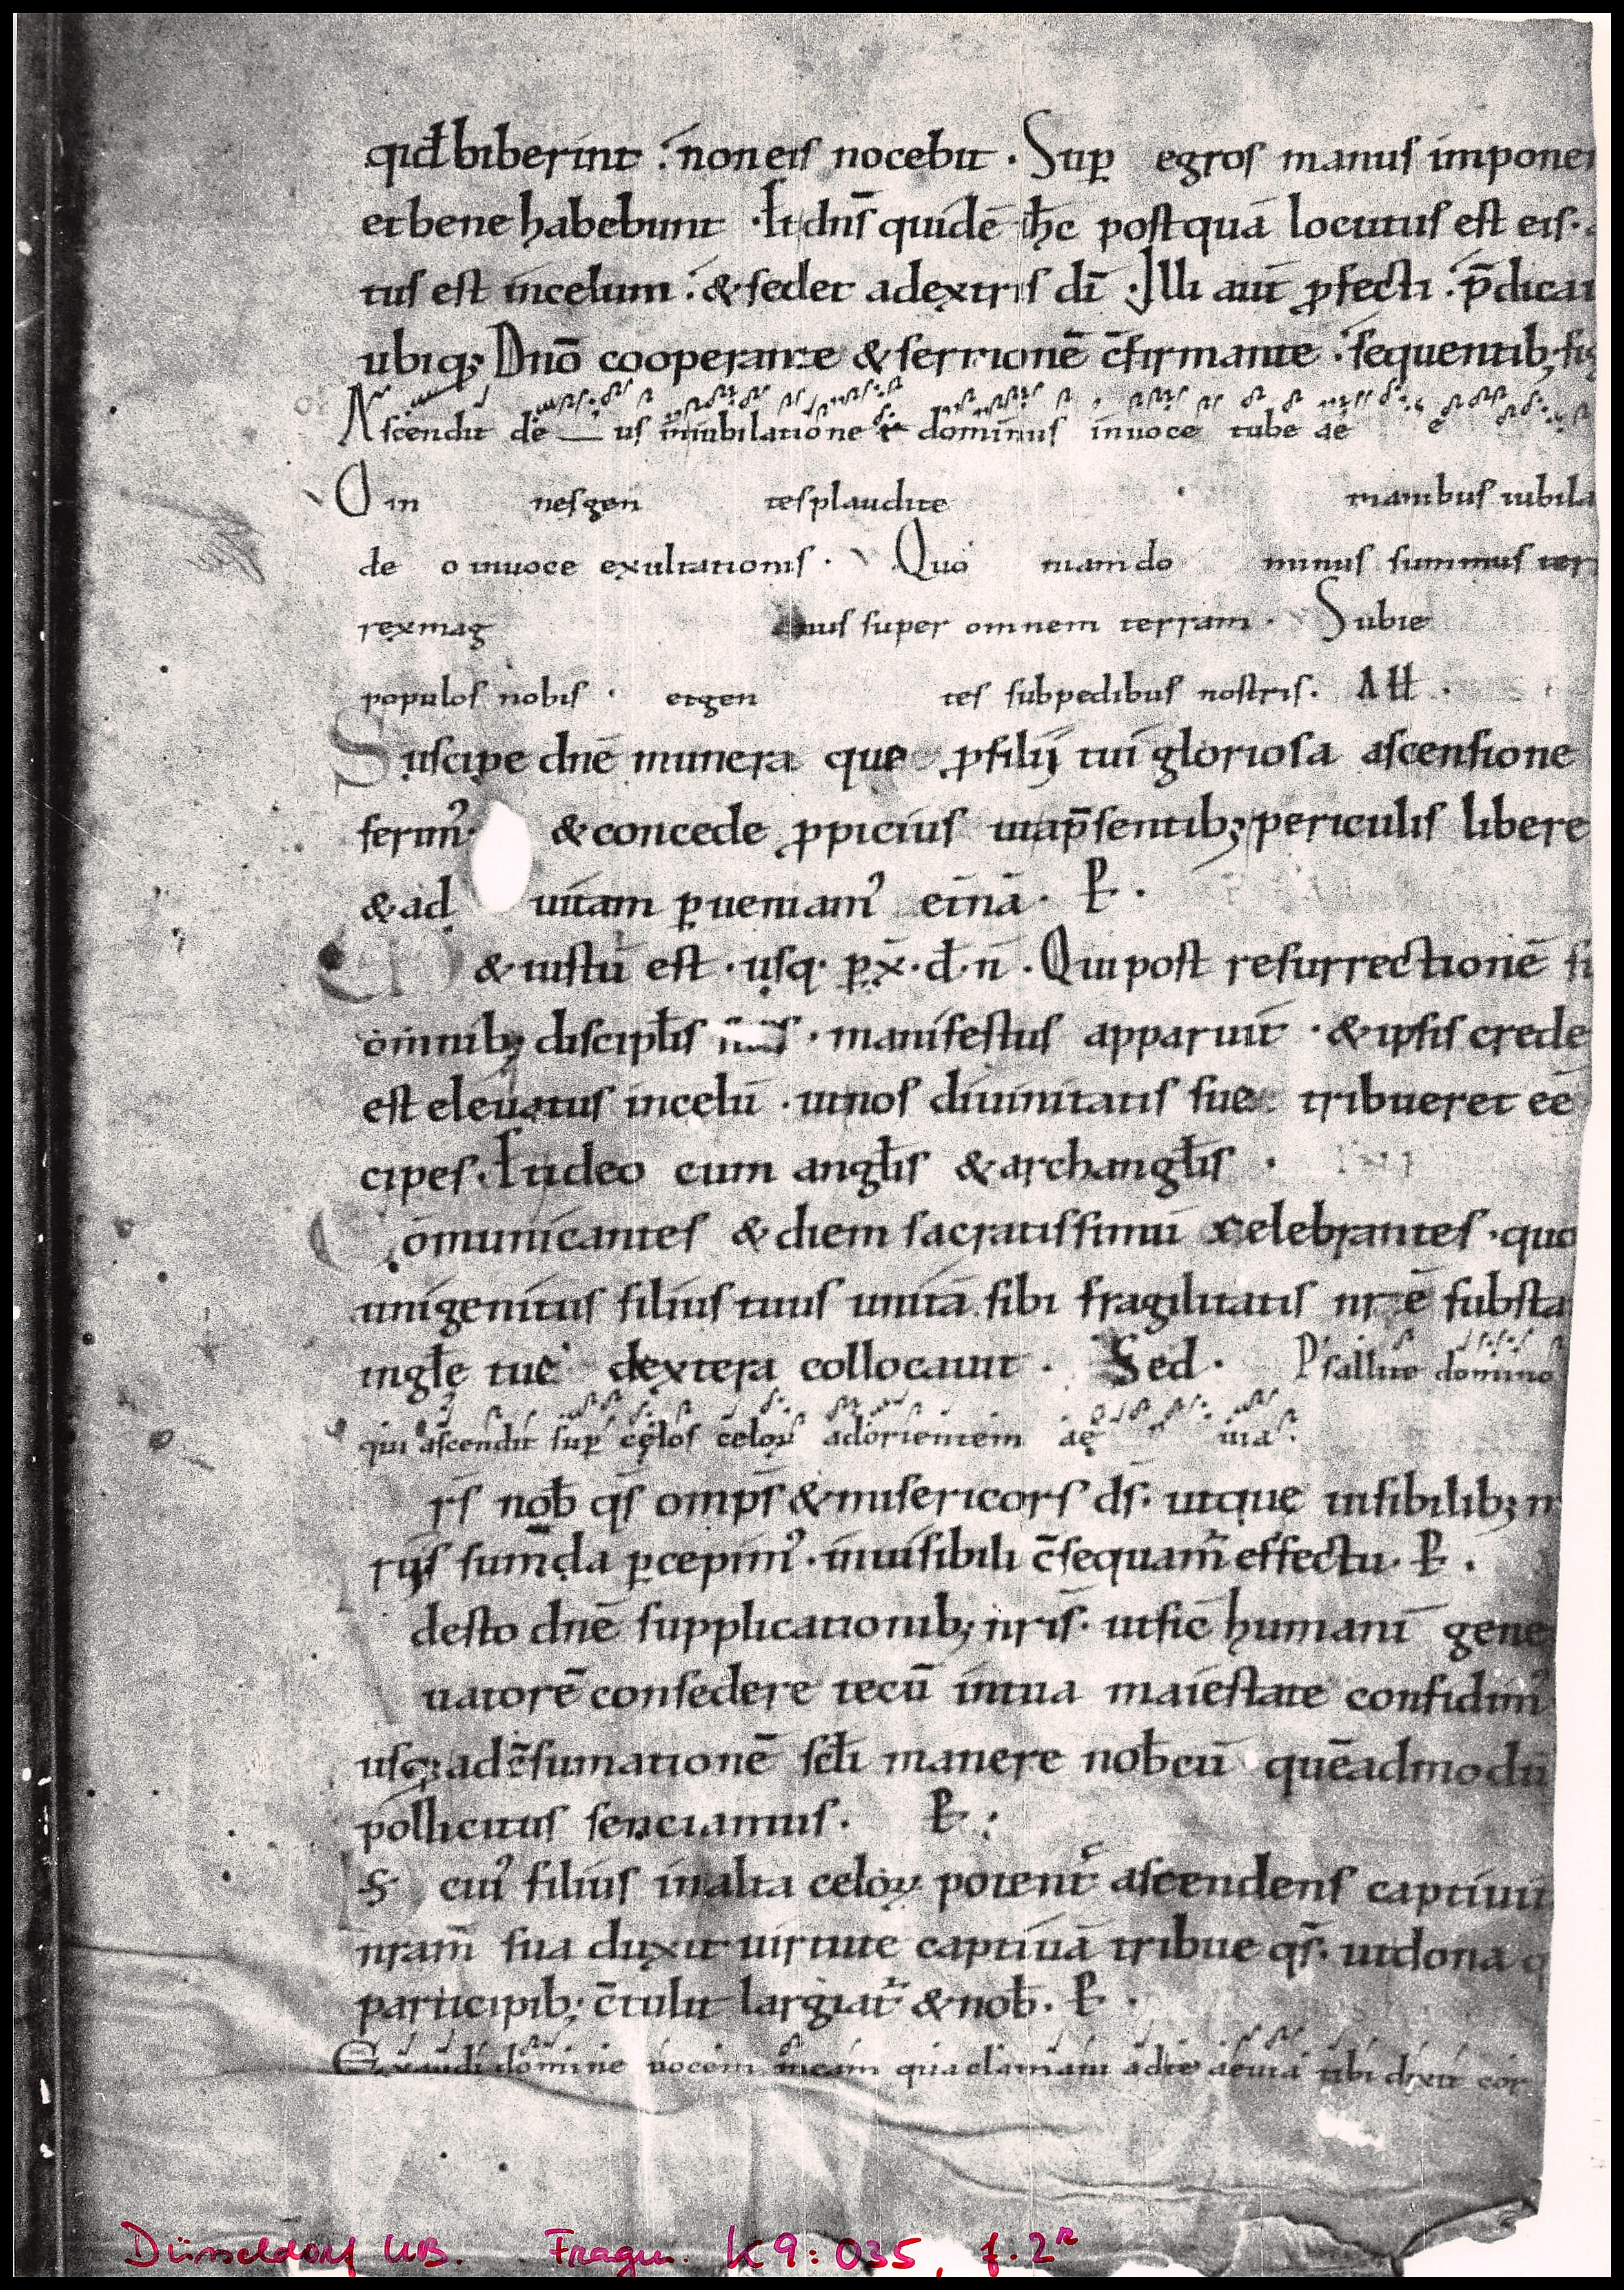 qid̄ biberint non eis nocebit . Sup̲ egros manus impone
et bene habebunt . Et dn̄s quidē h̄c post quā locutus est eis .
tus est in celum & sedet a dextris dī . Illi aūt p̲fecti p̄dica
ubiq; Dn̄o cooperante & sermonē c̄firmante sequentib; sig
Ascendit de us in iubilatione & dominus in uoce tube ae
Om nes gen tes plaudite manibus iubila
de o in uoce exultationis . Quo niam do minus summus ter
rex mag nus super omnem terram . Subie
populos nobis . et gen tes sub pedibus nostris . All .
Suscipe dnē munera que p̲ filij tui gloriosa ascensione
ferim᾿ & concede p̲picius ut a p̄sentib; periculis libere
& ad uitam p̲ueniam᾿ et̄nā . P̲ .
& iustū est . usq . p̲ x̄ . d . n̄ . Qui post resurrectionē s
omnib; discipl̄is suis . manifestus apparuit . & ipsis c̲rede
est eleuatus in celū . ut nos diuinitatis sue tribueret eē
cipes . Et ideo cum angl̄is & archangl̄is .
Comunicantes & diem sacratissimū celebrantes . quo
unigenitus filius tuus unitā sibi fragilitatis nr̄ē substa
in gl̄e tue dextera collocauit . Sed . Psallite domino
qui ascendit sup̲ cęlos celoꝝ ad orientem ae uia .
r̄s nob̄ qs̄ omp̄s & misericors ds̄ . ut que uisibilib; m
rijs sum̄da p̲cepim᾿ . inuisibili c̄sequam̄ effectu . P̲ .
desto dnē supplicationib; nr̄is . ut sic̄ humani gene
uatorē consedere tecū in tua maiestate confidim᾿
usq; ad c̄sumationē scl̄i manere nob̄cū quēadmodū
pollicitus senciamus . P̲ .
S cui᾿ filius in alta celoꝝ potent̄ ascendens captiuit
nram̄ sua duxit uirtute captiuā tribue qs̄ . ut dona q
participib; c̄tulit largiat̄ & nob̄ . P̲ .
Exaudi domine uocem meam qua clamaui ad te aeuia tibi dixit cor
Düsseldorf UB. Fragm. K9:035, f. 2ᴿ